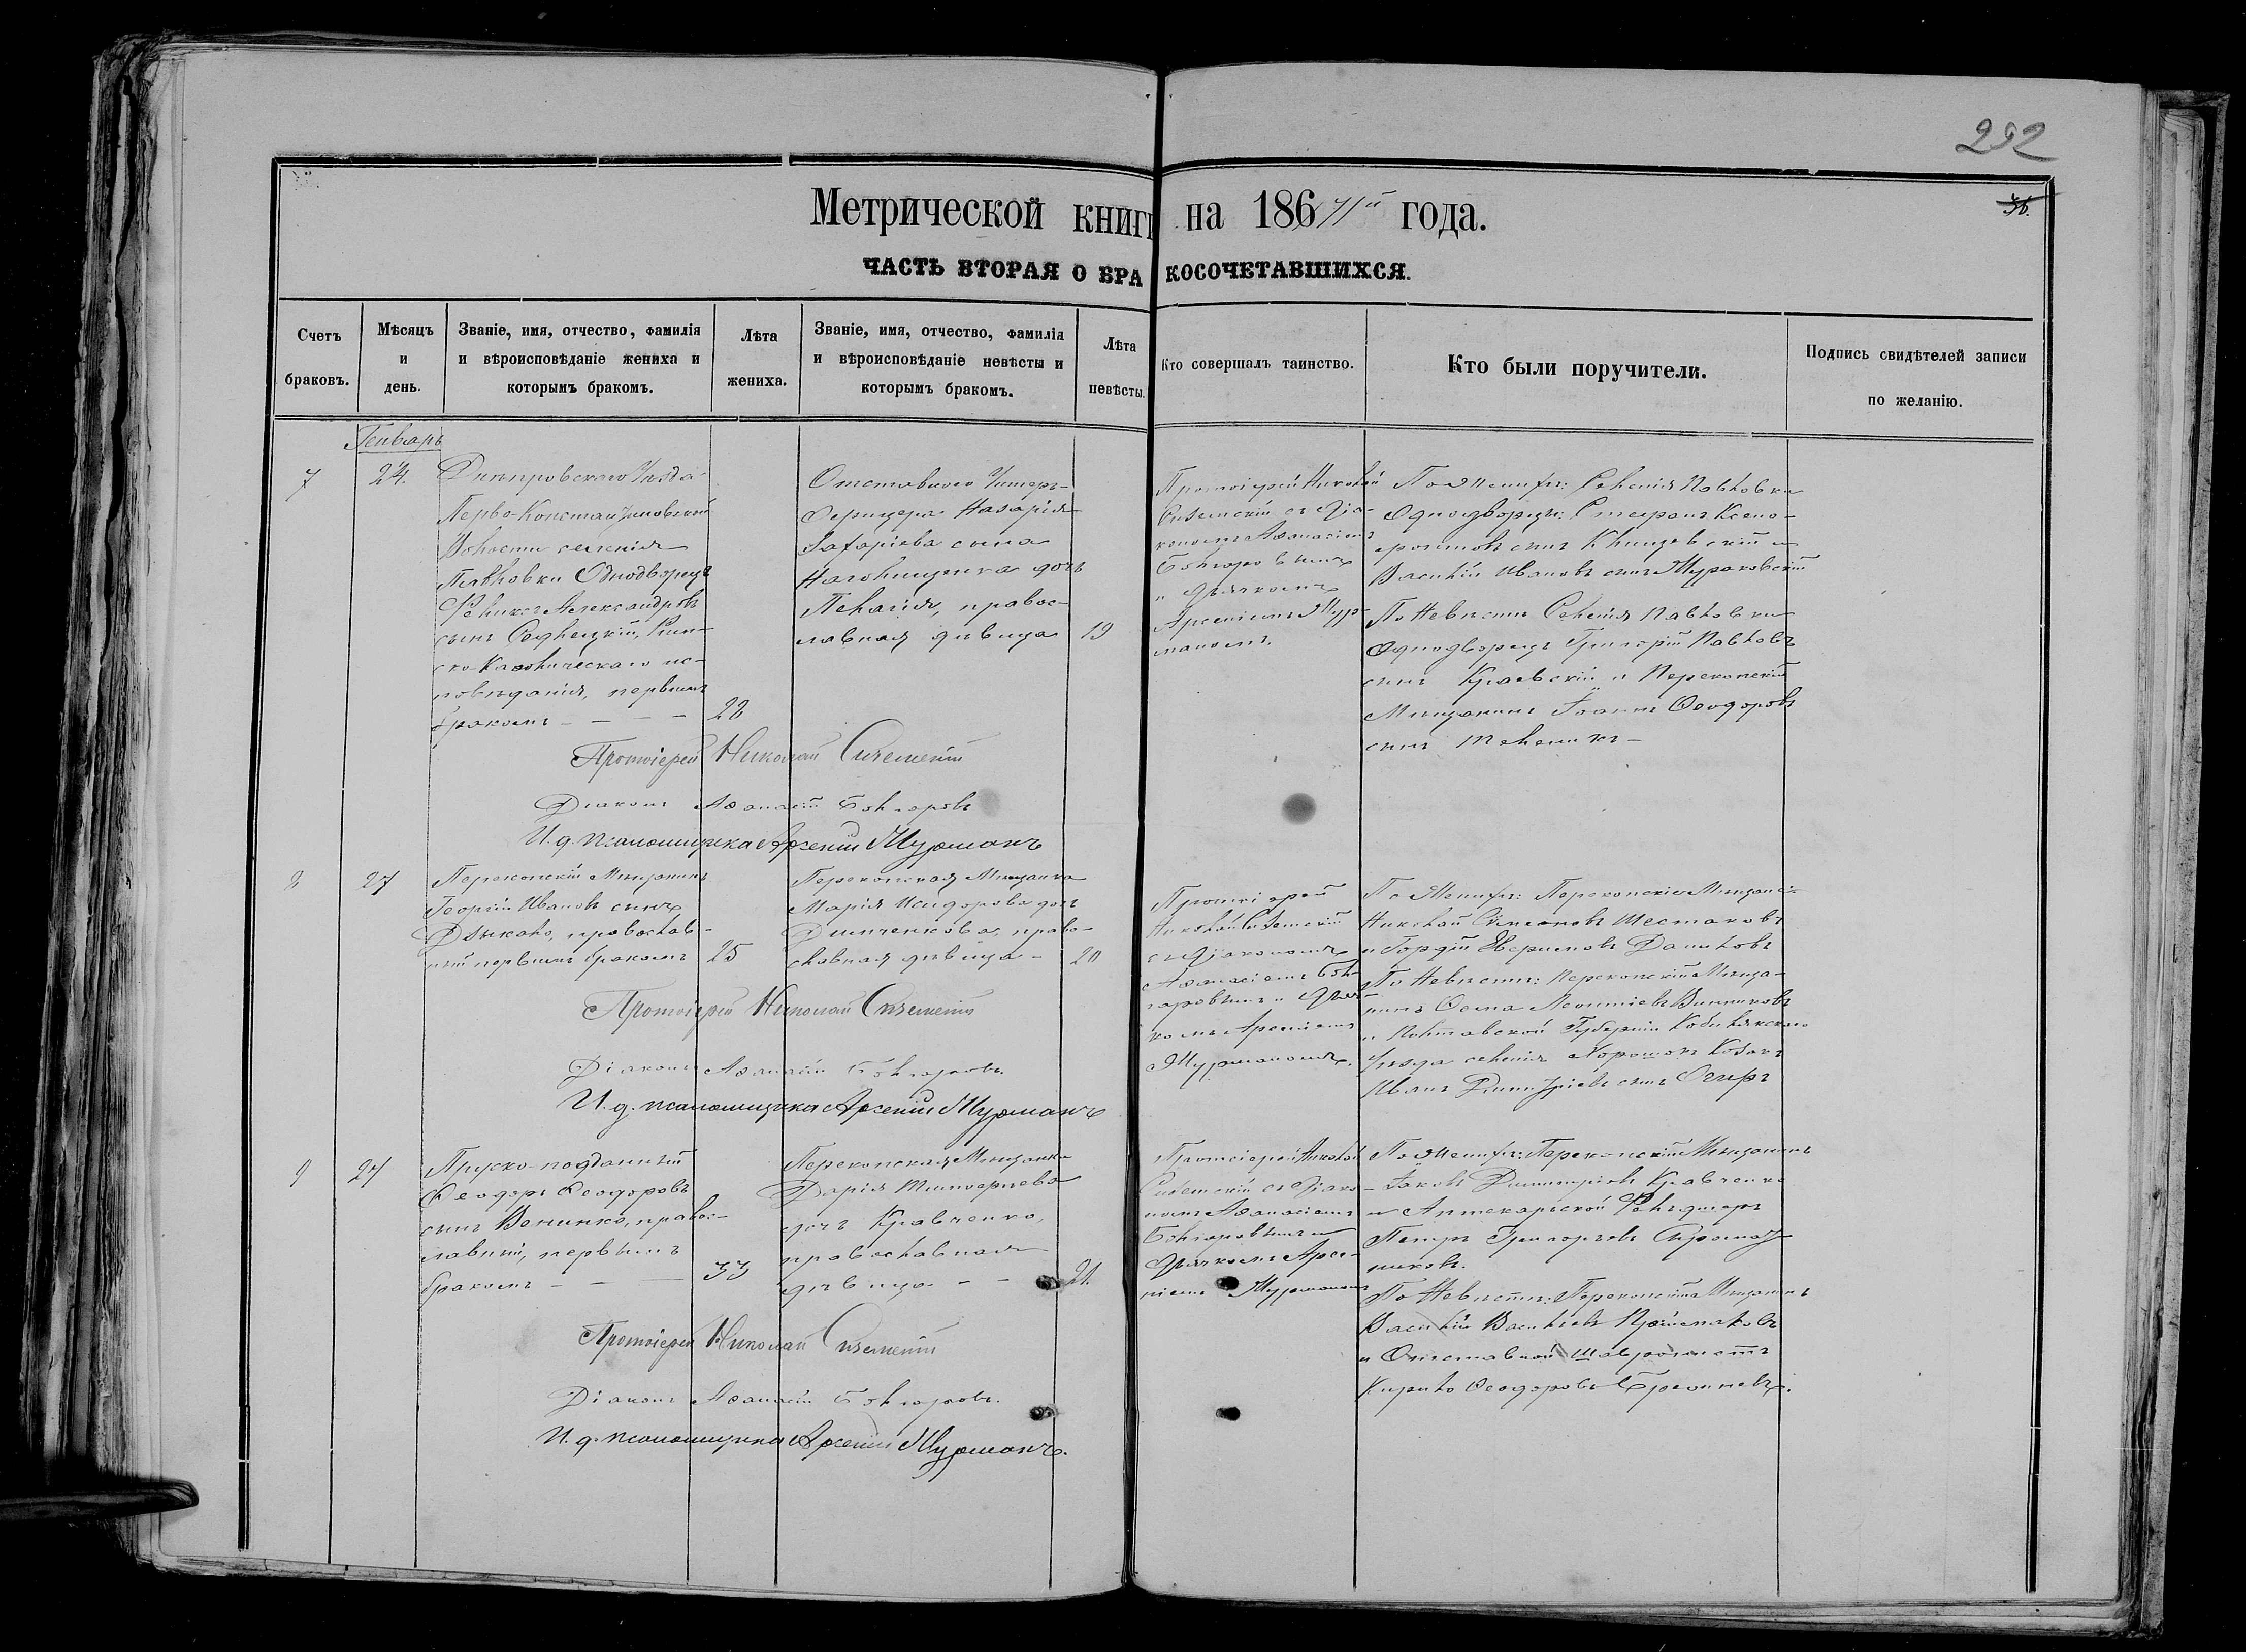 292
36.
Метрической книги на 1867/1й года.
ЧАСТЬ ВТОРАЯ О БРАКОСОЧЕТАВШИХСЯ.
Счетъ браковъ.
Мѣсяцъ и день.
Званіе, имя, отчество, фамилія
и вѣроисповѣданіе жениха и
которымъ бракомъ.
Лѣта
жениха.
Званіе, имя, отчество, фамилія
и вѣроисповѣданіе невѣсты и
которымъ бракомъ.
Лѣта
невѣсты.
Кто совершалъ таинство.
Кто были поручители.
Подпись свидѣтелей записи
по желанію.
Генварь
7
24.
Днѣпровскаго Уѣзда
Перво-Константиновской
Волости селенія
Павловки Однодворецъ
Феликсъ Александровъ
сынъ Рим-
ско-Католическаго ис-
повѣданія, первымъ
бракомъ
28
Отставнаго Унтеръ-
Офицера Назарія
Захаріева сына
дочь
Пелагія, правос-
лавная дѣвица
19
Протоіерей Николай
Сиземскій съ Діа-
кономъ Аѳанасіемъ
Болгаровымъ
и дьячкомъ
Арсеніемъ Мур-
маномъ.
По Женихѣ: Селенія Павловки
Однодворцы: Стефанъ Ксено-
фонтовъ сынъ и
Василій Ивановъ сынъ Жураковскій
По Невѣстѣ Селенія Павловки
Однодворецъ Григорій Павловъ
сынъ Краевскій и Перекопскій
Мѣщанинъ Іоаннъ Ѳеодоровъ
сынъ
Протоіерей Николай Сиземскій
Діаконъ Аѳанасій Болгаровъ
И. д. псаломщика Арсеній Мурманъ
8
27
Перекопскій Мѣщанинъ
Георгій Ивановъ сынъ
православ-
ный первымъ бракомъ
25
Перекопская Мѣщанка
Марія Исидорова дочь
Димченкова, право-
славная дѣвица
20
Протоіерей
Николай Сиземскій
съ Діакономъ
Аѳанасіемъ Бол-
гаровымъ и Дьяч-
комъ Арсеніемъ
Мурманомъ.
По Женихѣ: Перекопскіе Мѣщане:
Николай Симеоновъ Шестаковъ
и Гордѣй Даниловъ
По Невѣстѣ: Перекопскій Мѣща-
нинъ Ѳома Леонтіевъ Винниковъ
и Полтавской Губерніи Кобилякскаго
Уѣзда селенія Козакъ
Иванъ Димитріевъ сынъ
Протоіерей Николай Сиземскій
Діаконъ Аѳанасій Болгаровъ.
И. д. псаломщика Арсеній Мурманъ
9
27
Пруско-подданный
Ѳеодоръ Ѳеодоровъ
сынъ правос-
лавный, первымъ
бракомъ
33
Перекопская Мѣщанка
Дарія Тимоѳеева
дочь Кравченко,
православная
дѣвица
21.
Протоіерей Николай
Сиземскій съ Діако-
номъ Аѳанасіемъ
Болгаровымъ и
Дьячкомъ Арсе-
ніемъ Мурманомъ
По Женихѣ: Перекопскій Мѣщанинъ
Іаковъ Димитріевъ Кравченко
и Аптекарьской Фельдшеръ
Петръ Григорьевъ
никовъ.
По Невѣстѣ: Перекопскій Мѣщанинъ
Василій Васильевъ
и Отставной
Кирилъ Ѳеодоровъ
Протоіерей Николай Сиземскій
Діаконъ Аѳанасій Болгаровъ.
И. д. псаломщика Арсеній Мурманъ.